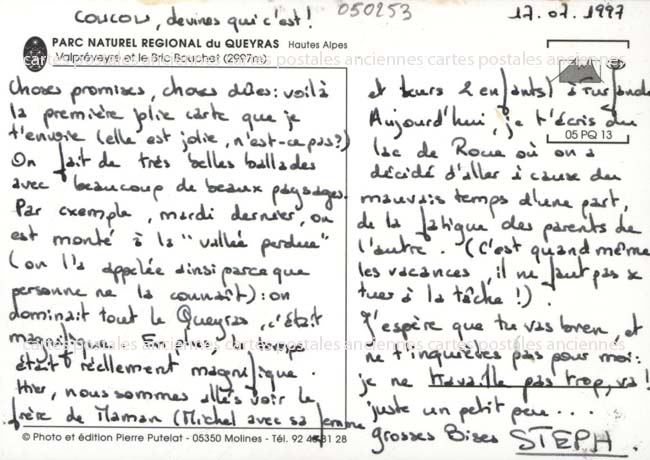 COUCOU, devines qui c'est !
050253
17.07.1997
PARC NATUREL REGIONAL du QUEYRAS Hautes Alpes
Valpréveyre et le Bric Bouchet (2997m)
cartes postales anciennes cartes postales anciennes cartes postales anciennes
05 PQ 13
Choses promises, choses dûes : voilà
la première jolie carte que je
t'envoie (elle est jolie, n'est-ce pas ?)
On fait de très belles ballades
avec beaucoup de beaux paysages.
Par exemple, mardi dernier, on
est monté à la "vallée perdue"
(on l'a appelée ainsi parce que
personne ne la connaît) : on
dominait tout le Queyras, c'était
magnifique. En plus, le temps
était réellement magnifique.
Hier, nous sommes allés voir le
frère de Maman (Michel avec sa femme
et leurs 2 enfants) à
Aujourd'hui, je t'écris du
lac de Roue où on a
décidé d'aller à cause du
mauvais temps d'une part,
de la fatigue des parents de
l'autre. (C'est quand même
les vacances, il ne faut pas se
tuer à la tâche !).
J'espère que tu vas bien, et
cartes postales anciennes cartes postales anciennes cartes postales anciennes
ne t'inquiètes pas pour moi :
je ne travaille pas trop, va !
juste un petit peu ...
grosses Bises STEPH.
© Photo et édition Pierre Putelat - 05350 Molines - Tél. 92 45 81 28